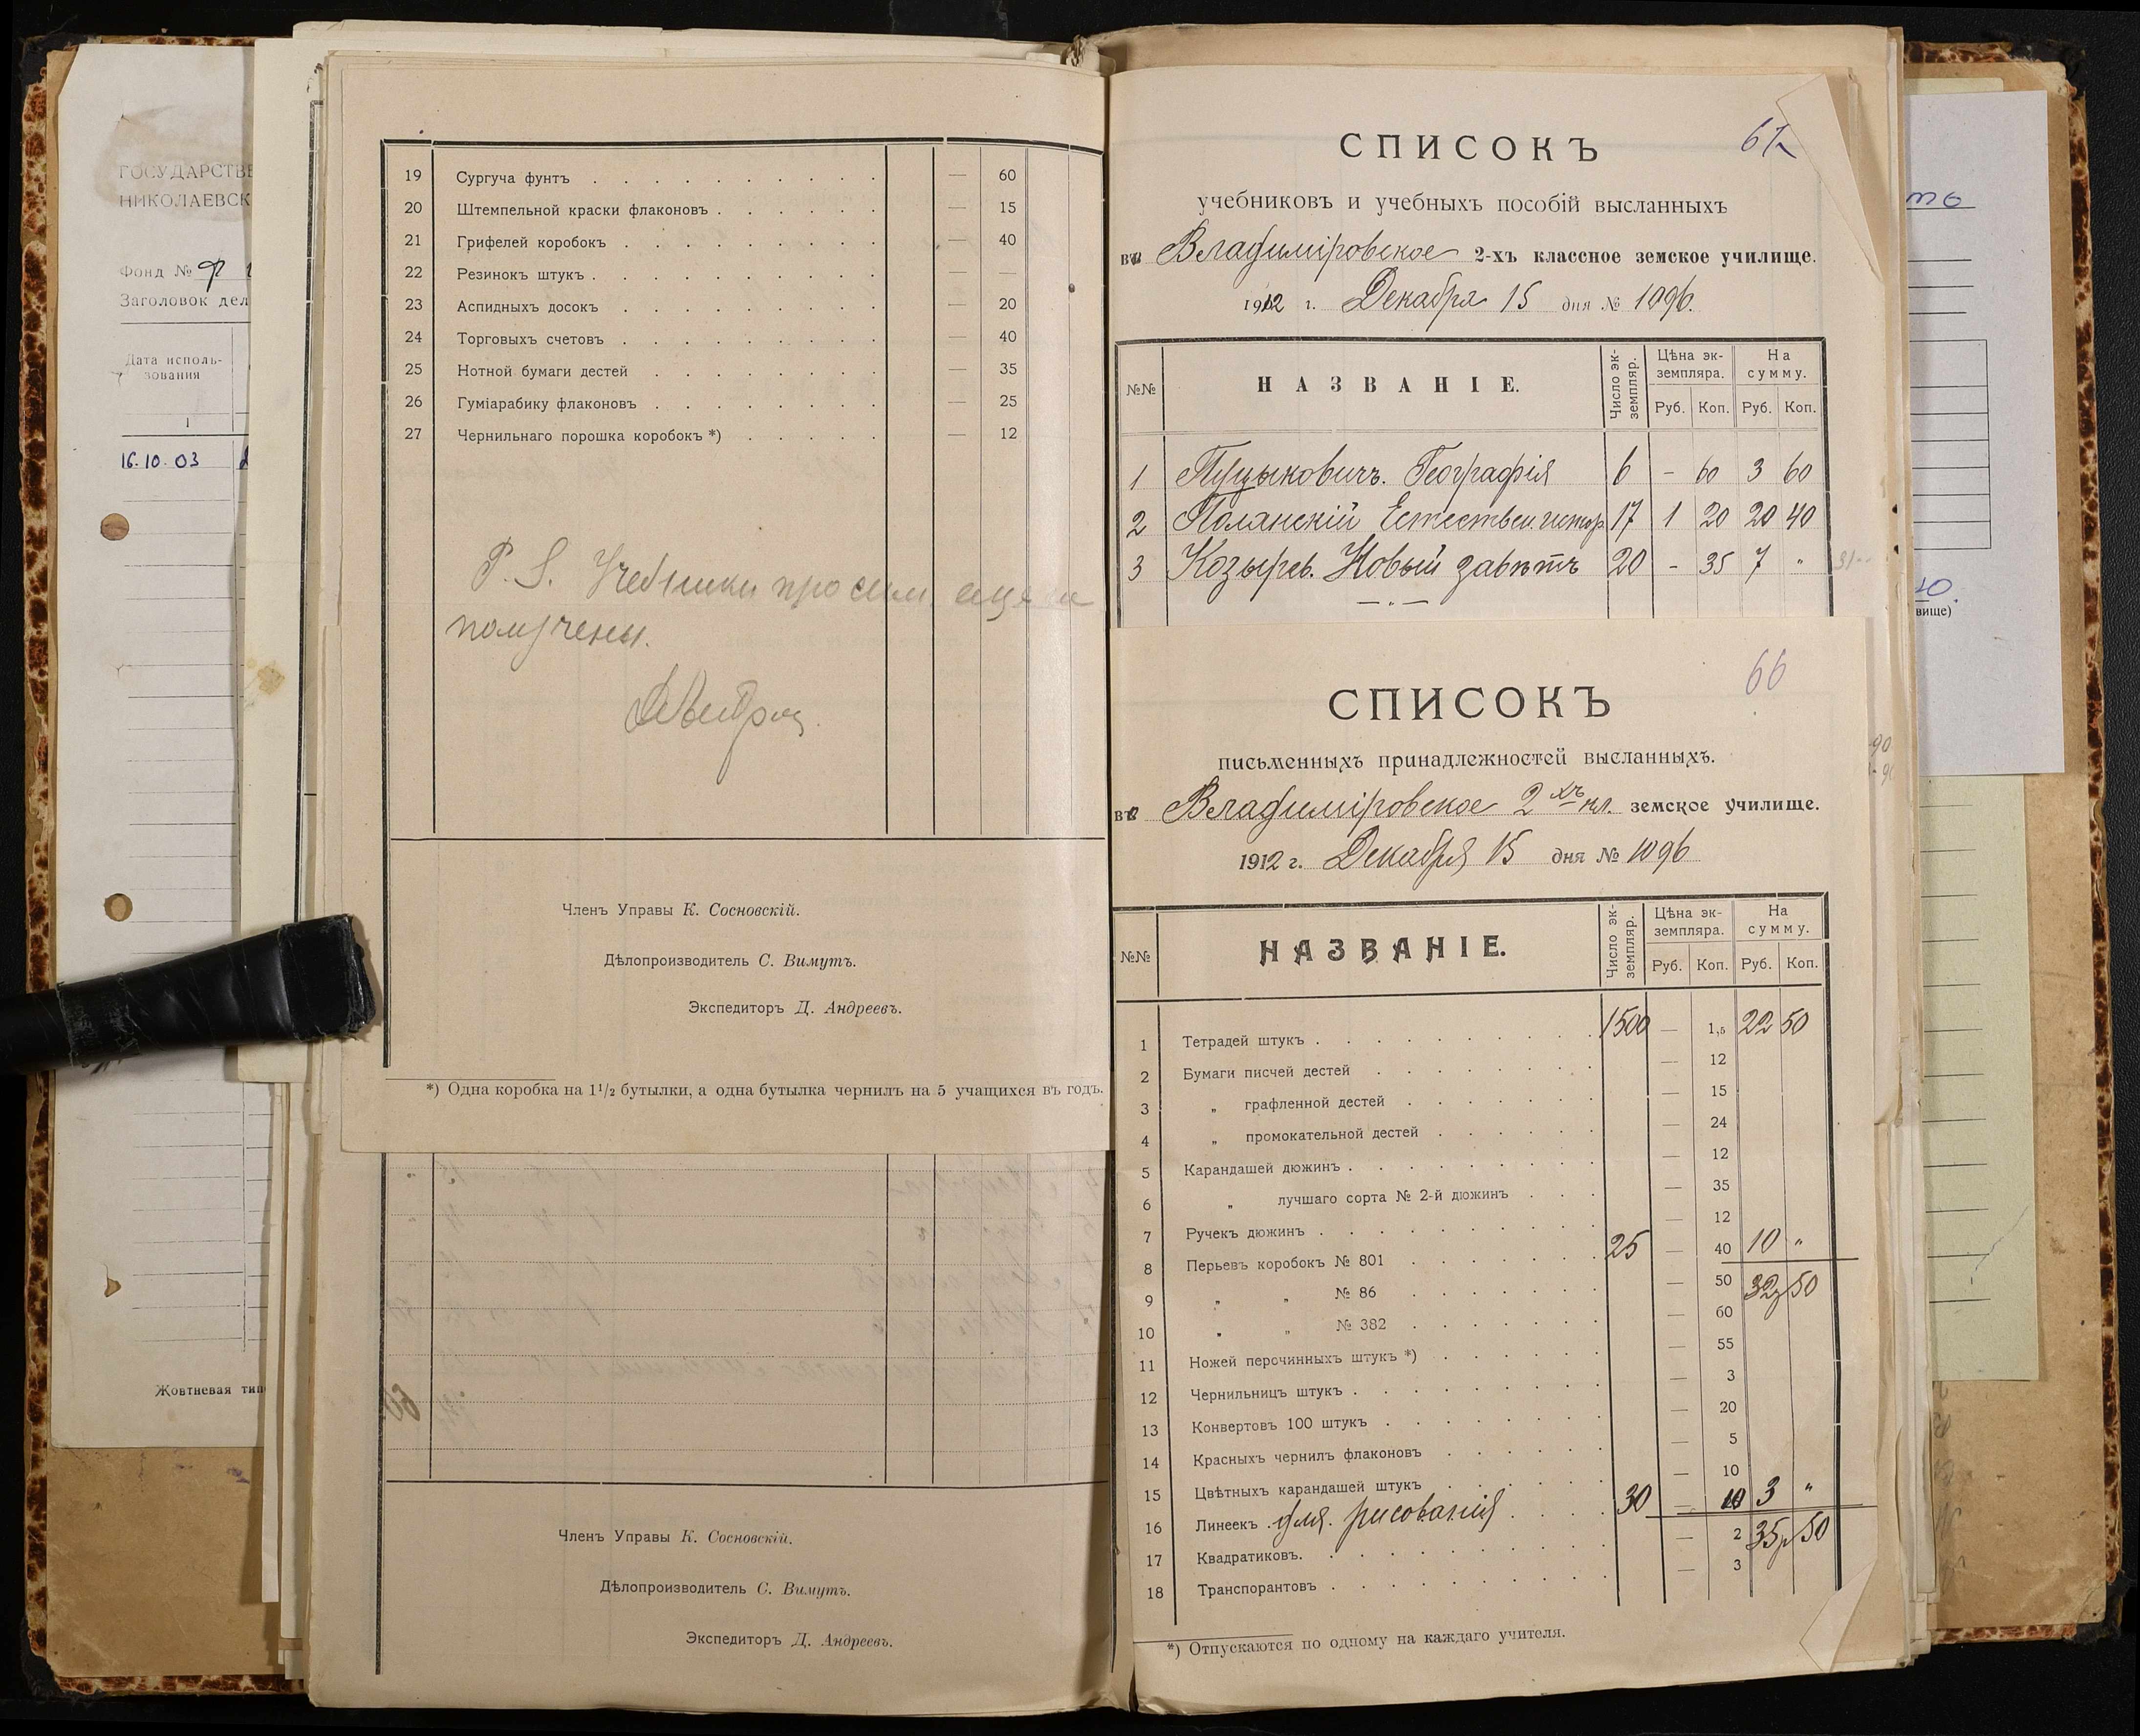 ГОСУДАРСТВЕ
НИКОЛАЕВСК
Фонд №
Заголовок дел
Дата исполь-
зования
1
16.10.03
Жовтневая тип
19 Сургуча фунтъ — 60
20 Штемпельной краски флаконовъ — 15
21 Грифелей коробокъ — 40
22 Резинокъ штукъ — —
23 Аспидныхъ досокъ — 20
24 Торговыхъ счетовъ — 40
25 Нотной бумаги дестей — 35
26 Гуміарабику флаконовъ — 25
27 Чернильнаго порошка коробокъ *) — 12
P. S. Учебники просим еще
получены.
Членъ Управы К. Сосновскій.
Дѣлопроизводитель С. Вимутъ.
Экспедиторъ Д. Андреевъ.
*) Одна коробка на 1½ бутылки, а одна бутылка чернилъ на 5 учащихся въ годъ.
Членъ Управы К. Сосновскій.
Дѣлопроизводитель С. Вимутъ.
Экспедиторъ Д. Андреевъ.
СПИСОКЪ
учебниковъ и учебныхъ пособій высланныхъ
въ Владиміровское 2-хъ классное земское училище.
1912 г. Декабря 15 дня № 1096.
№№ НАЗВАНІЕ. Число эк-земпляр. Цѣна эк-земпляра. На сумму.
Руб. Коп. Руб. Коп.
1 Пуцыковичъ. Географія 6 - 60 3 60
2 Полянскій Естествен. истор. 17 1 20 20 40
3 Козырев. Новый завѣтъ 20 - 35 7 "
66
СПИСОКЪ
письменныхъ принадлежностей высланныхъ.
въ Владиміровское 2хъ кл. земское училище.
1912 г. Декабря 15 дня № 1096
№№ НАЗВАНІЕ. Число эк-земпляр. Цѣна эк-земпляра. На сумму.
Руб. Коп. Руб. Коп.
1 Тетрадей штукъ 1500 — 1,5 22 50
2 Бумаги писчей дестей — 12
3 „ графленной дестей — 15
4 „ промокательной дестей — 24
5 Карандашей дюжинъ — 12
6 „ лучшаго сорта № 2-й дюжинъ — 35
7 Ручекъ дюжинъ — 12
8 Перьевъ коробокъ № 801 25 — 40 10 "
9 „ „ № 86 — 50 32р 50
10 „ „ № 382 — 60
11 Ножей перочинныхъ штукъ *) — 55
12 Чернильницъ штукъ — 3
13 Конвертовъ 100 штукъ — 20
14 Красныхъ чернилъ флаконовъ — 5
15 Цвѣтныхъ карандашей штукъ — 10
16 Линеекъ для рисованія 30 — 10 3 "
17 Квадратиковъ. — 2 35р 50
18 Транспорантовъ — 3
*) Отпускаются по одному на каждаго учителя.
вище)